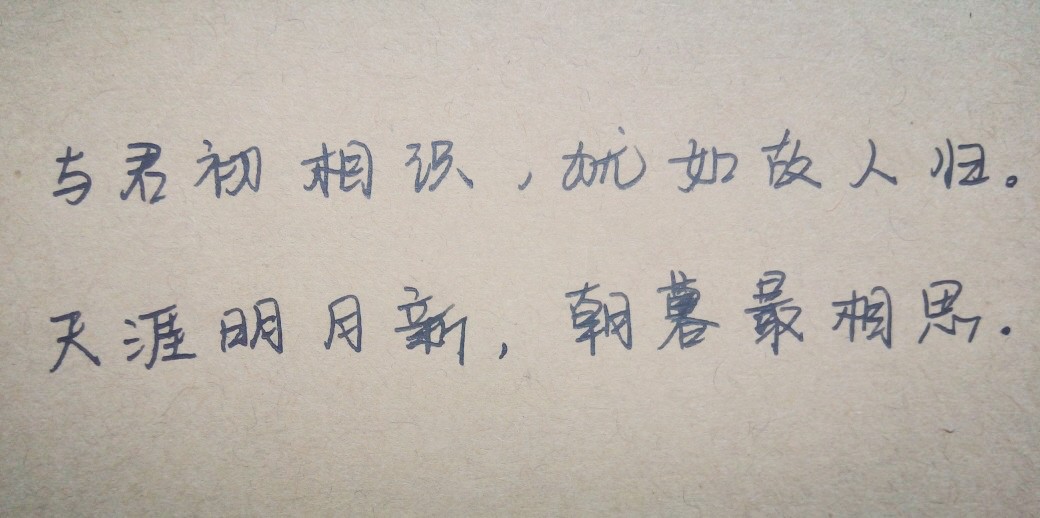 与君初相识，犹如故人归。
天涯明月新，朝暮最相思.